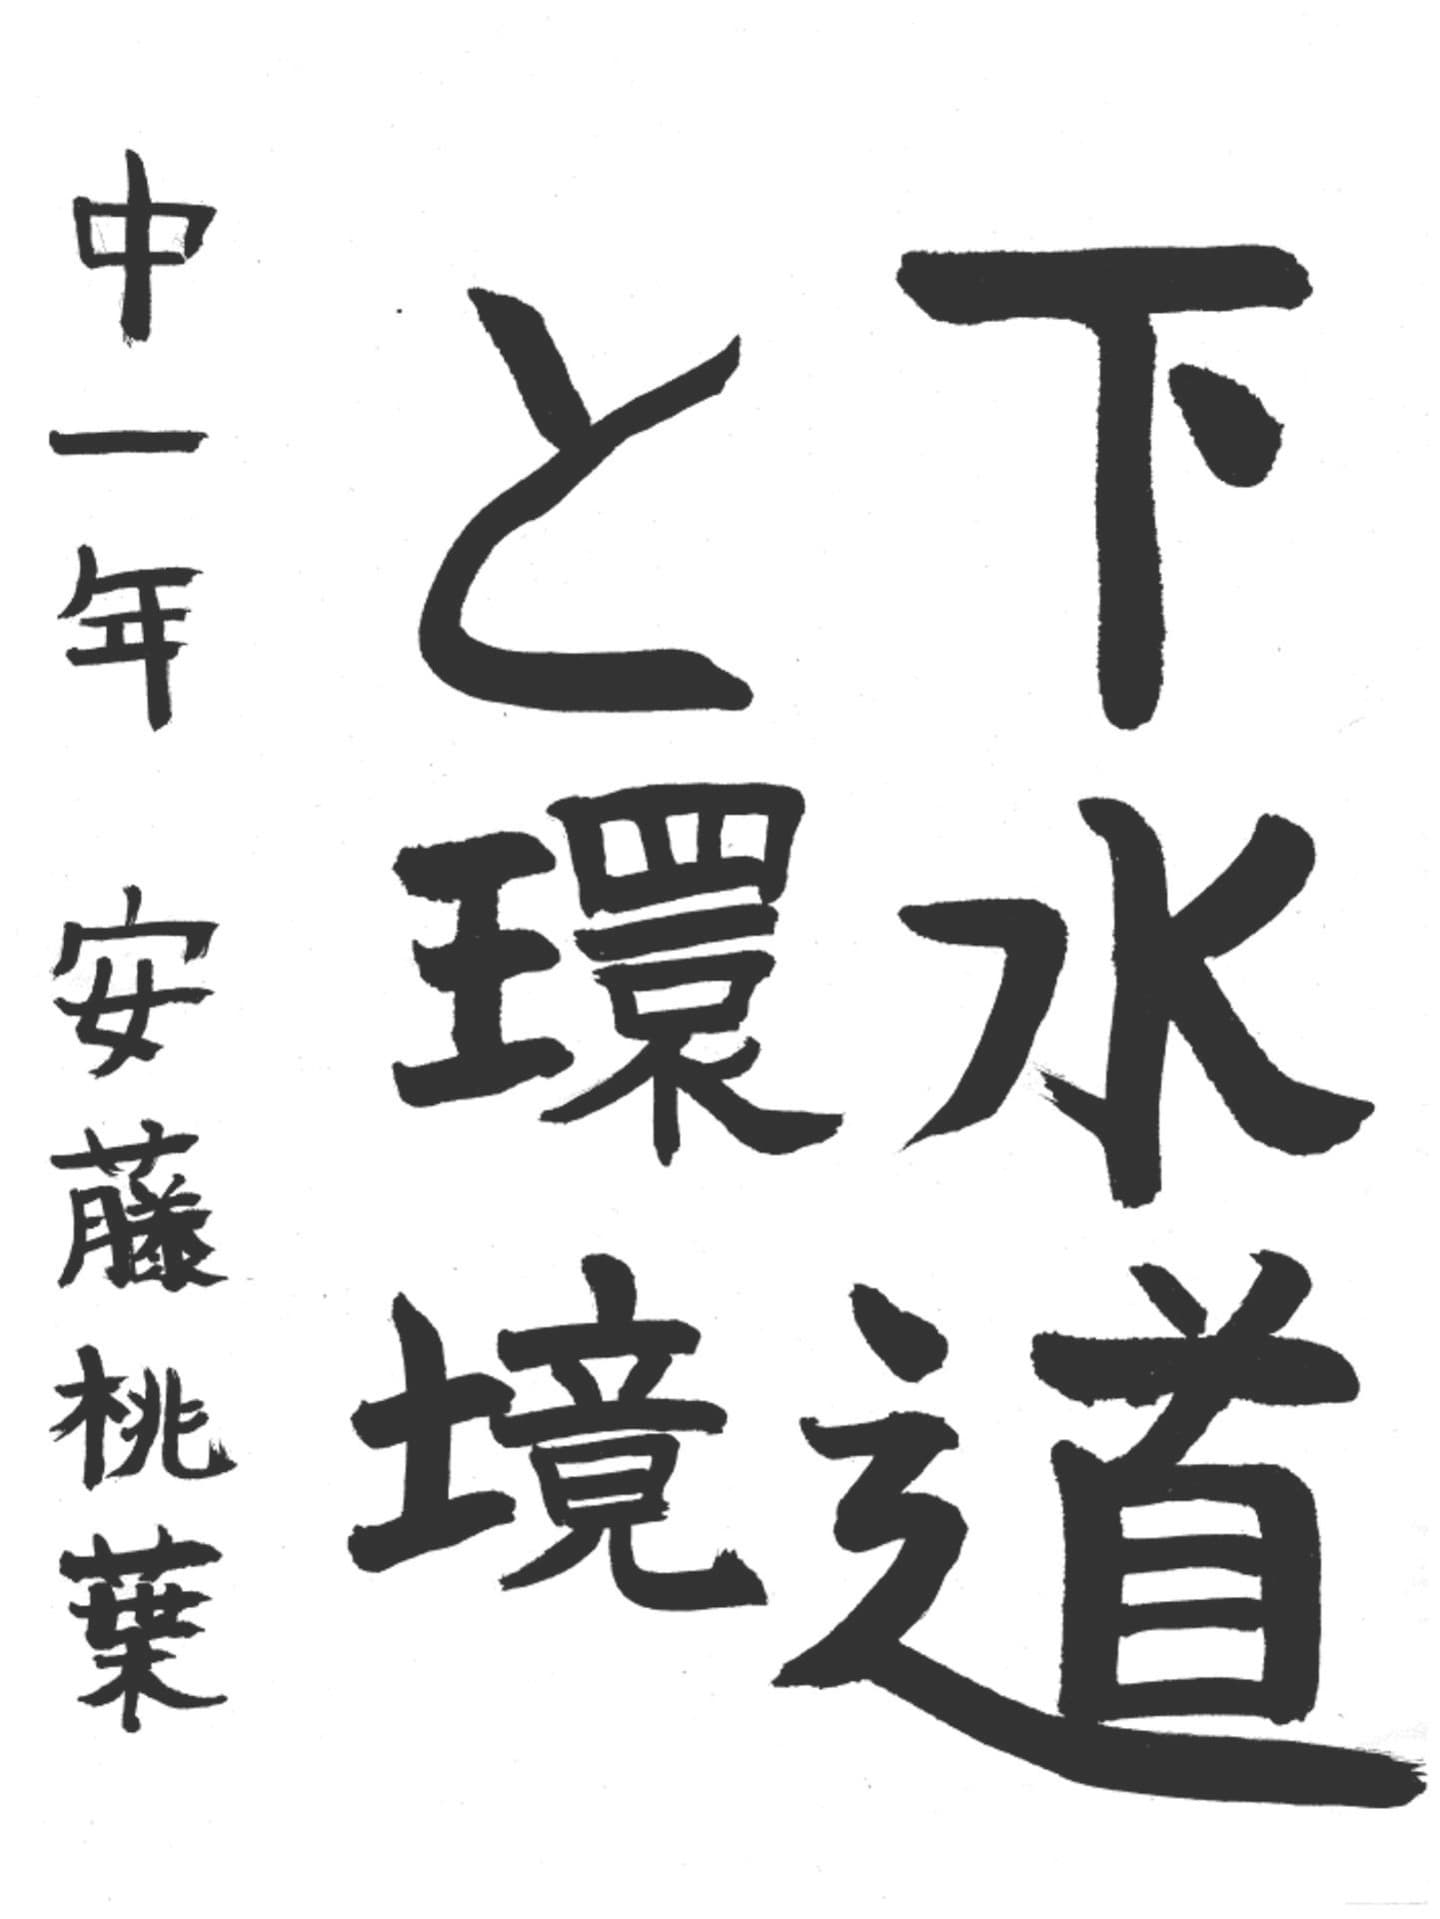 下水道
と環境
中一年 安藤桃葉